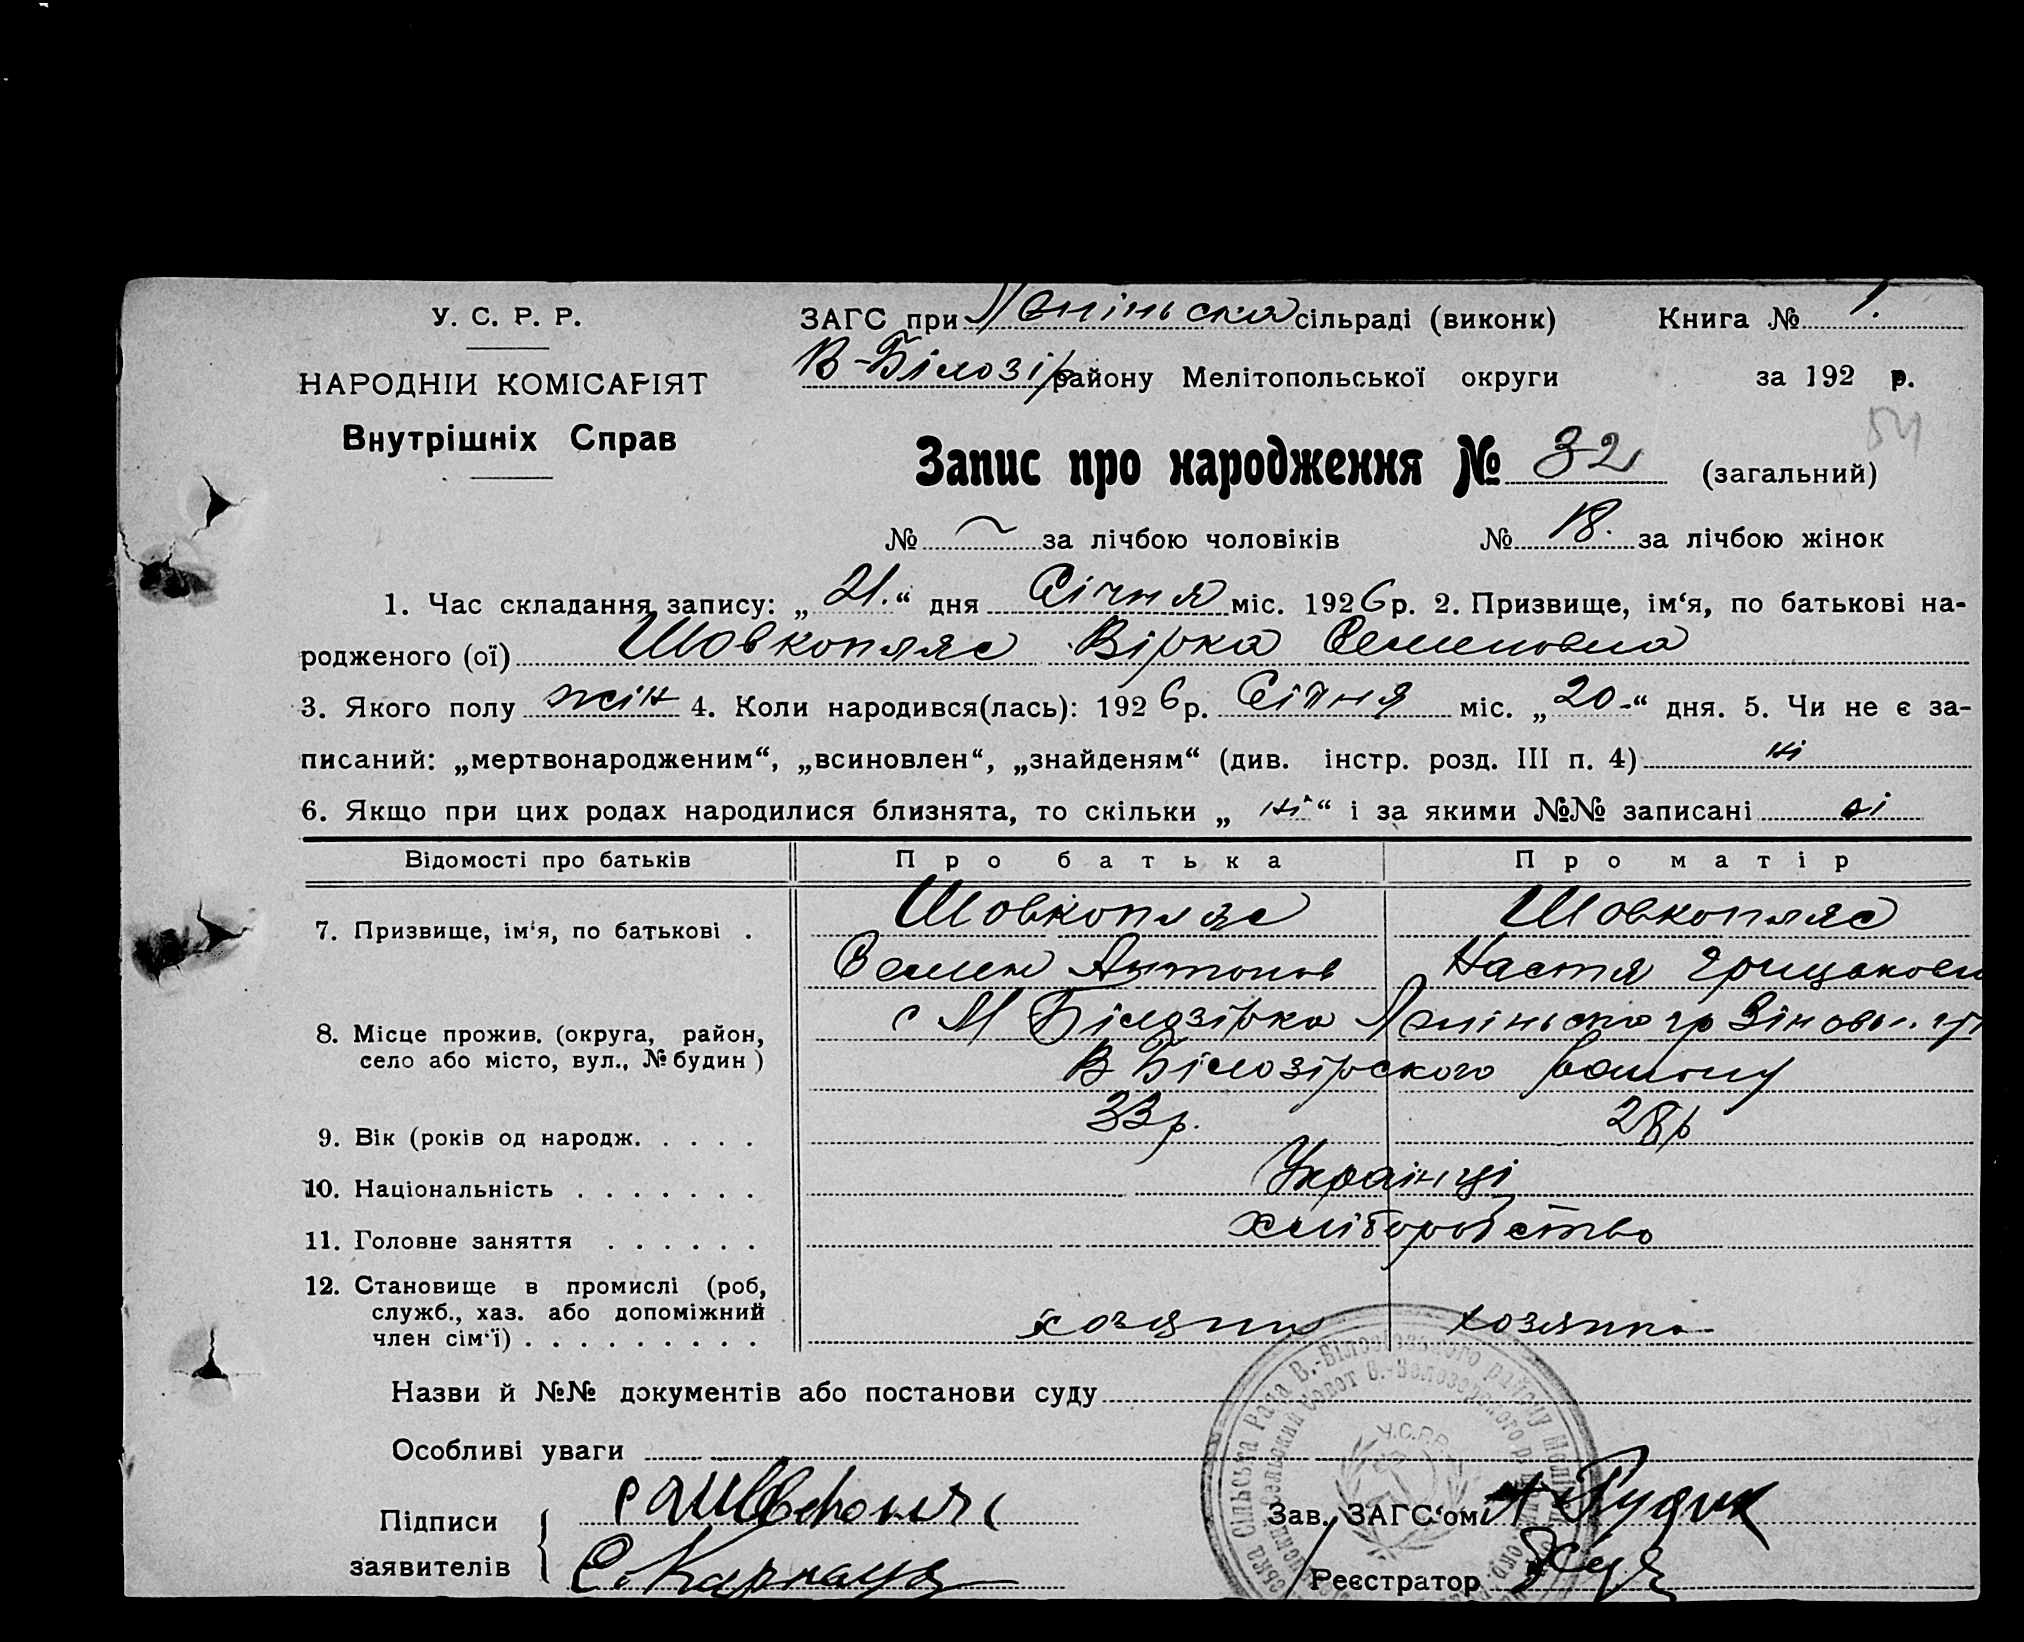 У. С. Р. Р.
НАРОДНІЙ КОМІСАРІЯТ
Внутрішніх Справ
ЗАГС при Леніньска сільраді (виконк) Книга № 1.
В-Білозір району Мелітопольської округи за 192 р.
54
Запис про народження № 32 (загальний)
№ ~ за лічбою чоловіків № 18. за лічбою жінок
1. Час складання запису: „21.“ дня Січня міс. 1926 р. 2. Призвище, ім‘я, по батькові на-
родженого (ої) Шовкопляс Вірка Семеновна
3. Якого полу жін 4. Коли народився(лась): 1926 р. Січня міс. „20-“ дня. 5. Чи не є за-
писаний: „мертвонародженим“, „всиновлен“, „знайденям“ (див. інстр. розд. III п. 4) ні
6. Якщо при цих родах народилися близнята, то скільки „ні“ і за якими №№ записані ні
Відомості про батьків Про батька Про матір
7. Призвище, ім‘я, по батькові . Шовкопляс Шовкопляс
Семен Антонов Настя Грицаковн
8. Місце прожив. (округа, район, с М Білозірка Леніньского
село або місто, вул., № будин) В Білозірского району
9. Вік (років од народж. . . . . 33р. 28р
10. Національність . . . . . . . Українці
11. Головне заняття . . . . . . хліборобство
12. Становище в промислі (роб,
служб., хаз. або допоміжний
член сім‘ї) . . . . . . . . . хозяин хозяика
Назви й №№ документів або постанови суду
Особливі уваги
У.С.Р.Р.
Підписи
заявителів
С. Карнаух
Зав. ЗАГС‘ом Рудик
Реєстратор